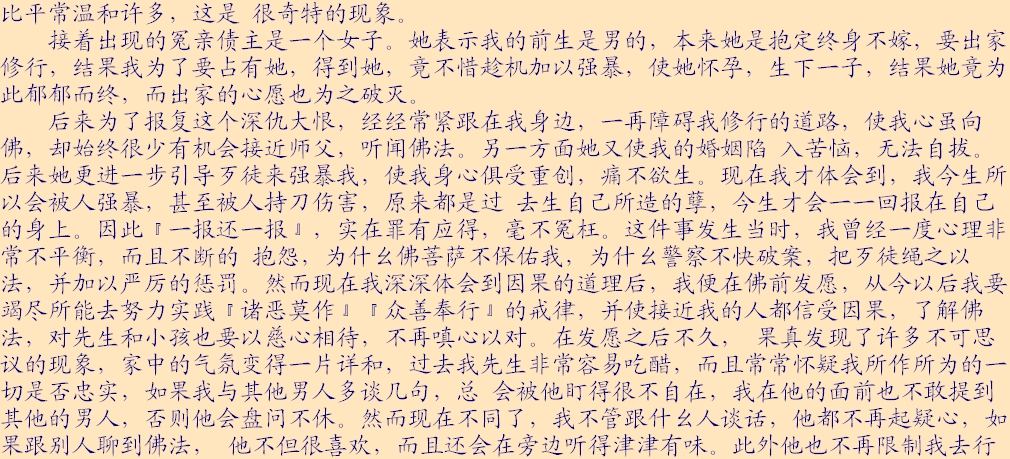 比平常温和许多，这是 很奇特的现象。
接着出现的冤亲债主是一个女子。她表示我的前生是男的，本来她是抱定终身不嫁，要出家
修行，结果我为了要占有她，得到她，竟不惜趁机加以强暴，使她怀孕，生下一子，结果她竟为
此郁郁而终，而出家的心愿也为之破灭。
后来为了报复这个深仇大恨，经经常紧跟在我身边，一再障碍我修行的道路，使我心虽向
佛，却始终很少有机会接近师父，听闻佛法。另一方面她又使我的婚姻陷 入苦恼，无法自拔。
后来她更进一步引导歹徒来强暴我，使我身心俱受重创，痛不欲生。现在我才体会到，我今生所
以会被人强暴，甚至被人持刀伤害，原来都是过 去生自己所造的孽，今生才会一一回报在自己
的身上。因此『一报还一报』，实在罪有应得，毫不冤枉。这件事发生当时，我曾经一度心理非
常不平衡，而且不断的 抱怨，为什么佛菩萨不保佑我，为什么警察不快破案，把歹徒绳之以
法，并加以严厉的惩罚。然而现在我深深体会到因果的道理后，我便在佛前发愿，从今以后我要
竭尽所能去努力实践『诸恶莫作』『众善奉行』的戒律，并使接近我的人都信受因果，了解佛
法，对先生和小孩也要以慈心相待，不再嗔心以对。在发愿之后不久， 果真发现了许多不可思
议的现象，家中的气氛变得一片详和，过去我先生非常容易吃醋，而且常常怀疑我所作所为的一
切是否忠实，如果我与其他男人多谈几句，总 会被他盯得很不自在，我在他的面前也不敢提到
其他的男人，否则他会盘问不休。然而现在不同了，我不管跟什么人谈话，他都不再起疑心，如
果跟别人聊到佛法， 他不但很喜欢，而且还会在旁边听得津津有味。此外他也不再限制我去行